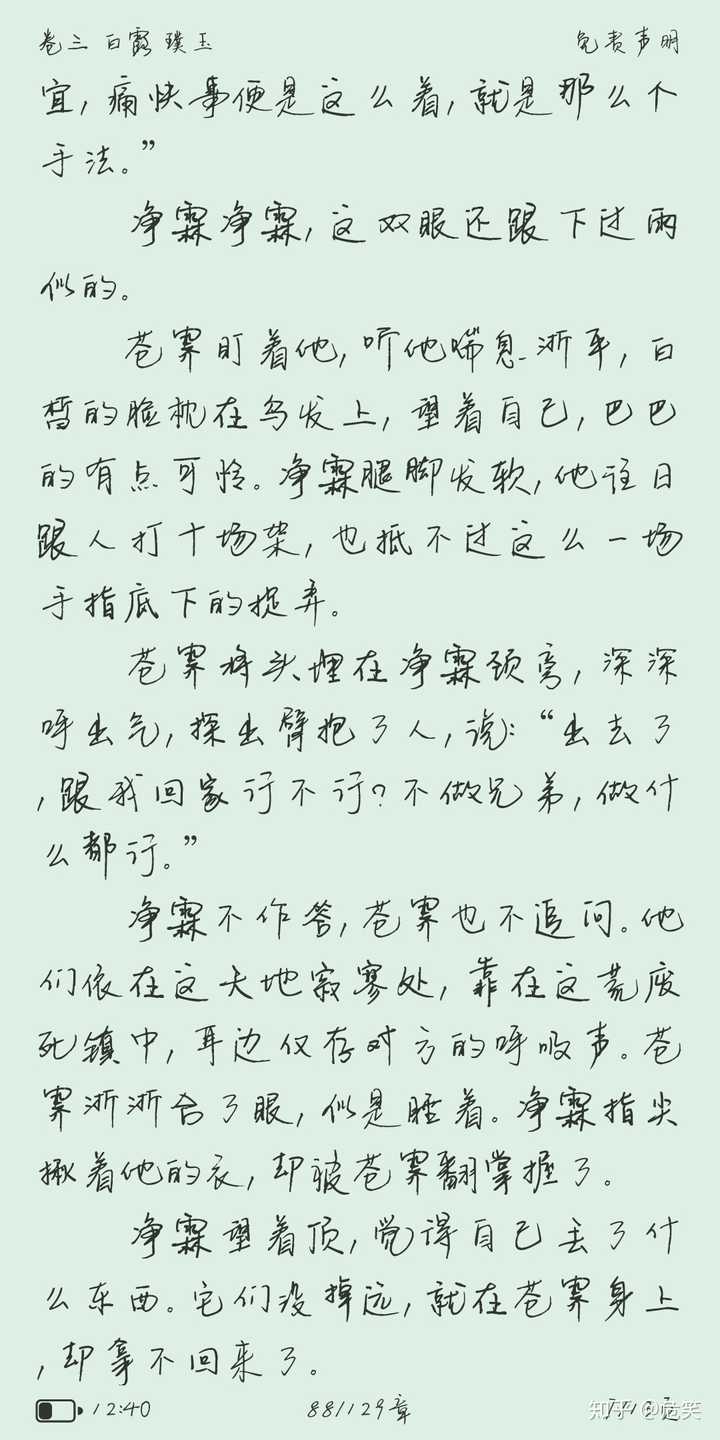 卷三 白露璞玉 免责声明
宜，痛快事便是这么着，就是那么个
手法。”
净霖净霖，这双眼还跟下过雨
似的。
苍霁盯着他，听他喘息渐平，白
皙的脸枕在乌发上，望着自己，巴巴
的有点可怜。净霖腿脚发软，他往日
跟人打十场架，也抵不过这么一场
手指底下的捉弄。
苍霁将头埋在净霖颈窝，深深
呼出气，探出臂抱了人，说：“出去了
，跟我回家行不行？不做兄弟，做什
么都行。”
净霖不作答，苍霁也不追问。他
们依在这天地寂寥处，靠在这荒废
死镇中，耳边仅存对方的呼吸声。苍
霁渐渐合了眼，似是睡着。净霖指尖
揪着他的衣，却被苍霁翻掌握了。
净霖望着顶，觉得自己丢了什
么东西。它们没掉远，就在苍霁身上
，却拿不回来了。
12:40 88/129章
知乎 @危笑